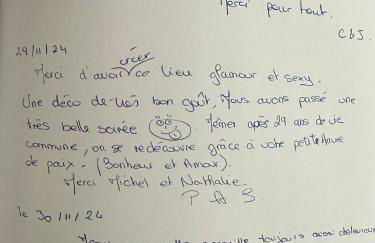 Merci pour tout.
CbJ.
29/11/24
créer
Merci d'avoir ce lieu glamour et sexy.
Une déco de très bon goût, Nous avons passé une
très belle soirée Même après 29 ans de vie
commune, on se redécouvre grâce à votre petit havre
de paix. (Bonheur et Amour).
Merci Michel et Nathalie.
P A S.
le 30/11/24
toujours aussi